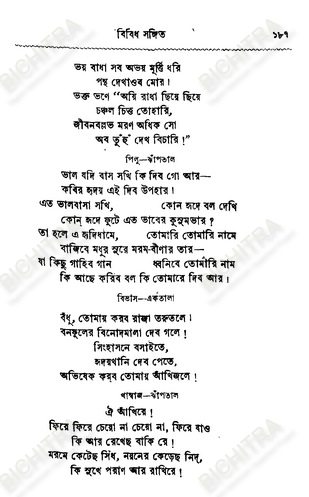 বিবিধ সঙ্গিত ১৮৭
ভয় বাধা সব অভয় মূর্ত্তি ধরি
পন্থ দেখাওব মোর।
ভক্ত ভণে “অয়ি রাধা ছিয়ে ছিয়ে
চঞ্চল চিত্ত তোহারি,
জীবনবল্লভ মরণ অধিক সো
অব তুঁহুঁ দেখ বিচারি!”
পিলু—ঝাঁপতাল
ভাল যদি বাস সখি কি দিব গো আর—
কবির হৃদয় এই দিব উপহার।
এত ভালবাসা সখি, কোন হৃদে বল দেখি
কোন্ হৃদে ফুটে এত ভাবের কুসুমভার?
তা হলে এ হৃদিধামে, তোমারি তোমারি নামে
বাজিবে মধুর সুরে মরম-বীণার তার—
যা কিছু গাহিব গান ধ্বনিবে তোমারি নাম
কি আছে কবির বল কি তোমারে দিব আর।
বিভাস—একতালা
বঁধু, তোমায় করব রাজা তরুতলে।
বনফুলের বিনোদমালা দেব গলে!
সিংহাসনে বসাইতে,
হৃদয়খানি দেব পেতে,
অভিষেক করব তোমায় আঁখিজলে!
খাম্বাজ—ঝাঁপতাল
ঐ আঁখিরে!
ফিরে ফিরে চেয়ো না চেয়ো না, ফিরে যাও
কি আর রেখেছ বাকি রে!
মরমে কেটেছ সিঁধ, নয়নের কেড়েছ নিদ্,
কি সুখে পরাণ আর রাখিরে!
BICHITRA